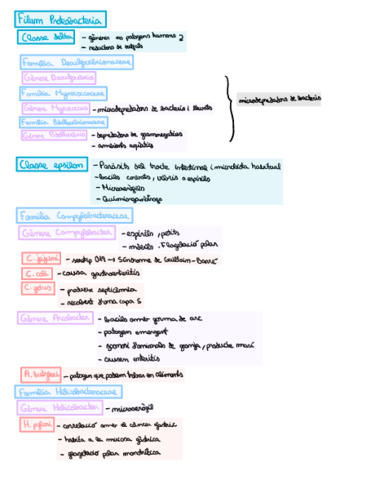 Fílum Proteobacteria
Classe delta - gèneres no patògens humans
- reductors de sulfats
Família Desulfovibrionaceae
Gènere Desulfovibrio
Família Myxococcaceae
Gènere Myxococcus - microdepredadors de bacteris i llevats
microdepredadors de bacteris
Família Bdellovibrionaceae
Gènere Bdellovibrio - depredadors de gramnegatius
- ambients aquàtics
Classe epsilon - Paràsits del tracte intestinal i microbiota habitual
- bacils corbats, vibris o espirils
- Microaeròfils
- Quimioorganòtrofs
Família Campylobacteraceae
Gènere Campylobacter - espirils, petits
- mòbils. Flagel·lació polar
C. jejuni - serotip O19 → Síndrome de Guillain-Barré
C. coli - causa gastroenteritis
C. fetus - produeix septicèmia
- recobert d'una capa S
Gènere Arcobacter - bacils amb forma de arc
- patogen emergent
- animals de granja, producte marí
- causen enteritis
A. butzleri - patogen que podem trobar en aliments
Família Helicobacteraceae
Gènere Helicobacter - microaeròfil
H. pylori - correlació amb el càncer gàstric
- habita a la mucosa gàstrica
- flagel·lació polar monotrica